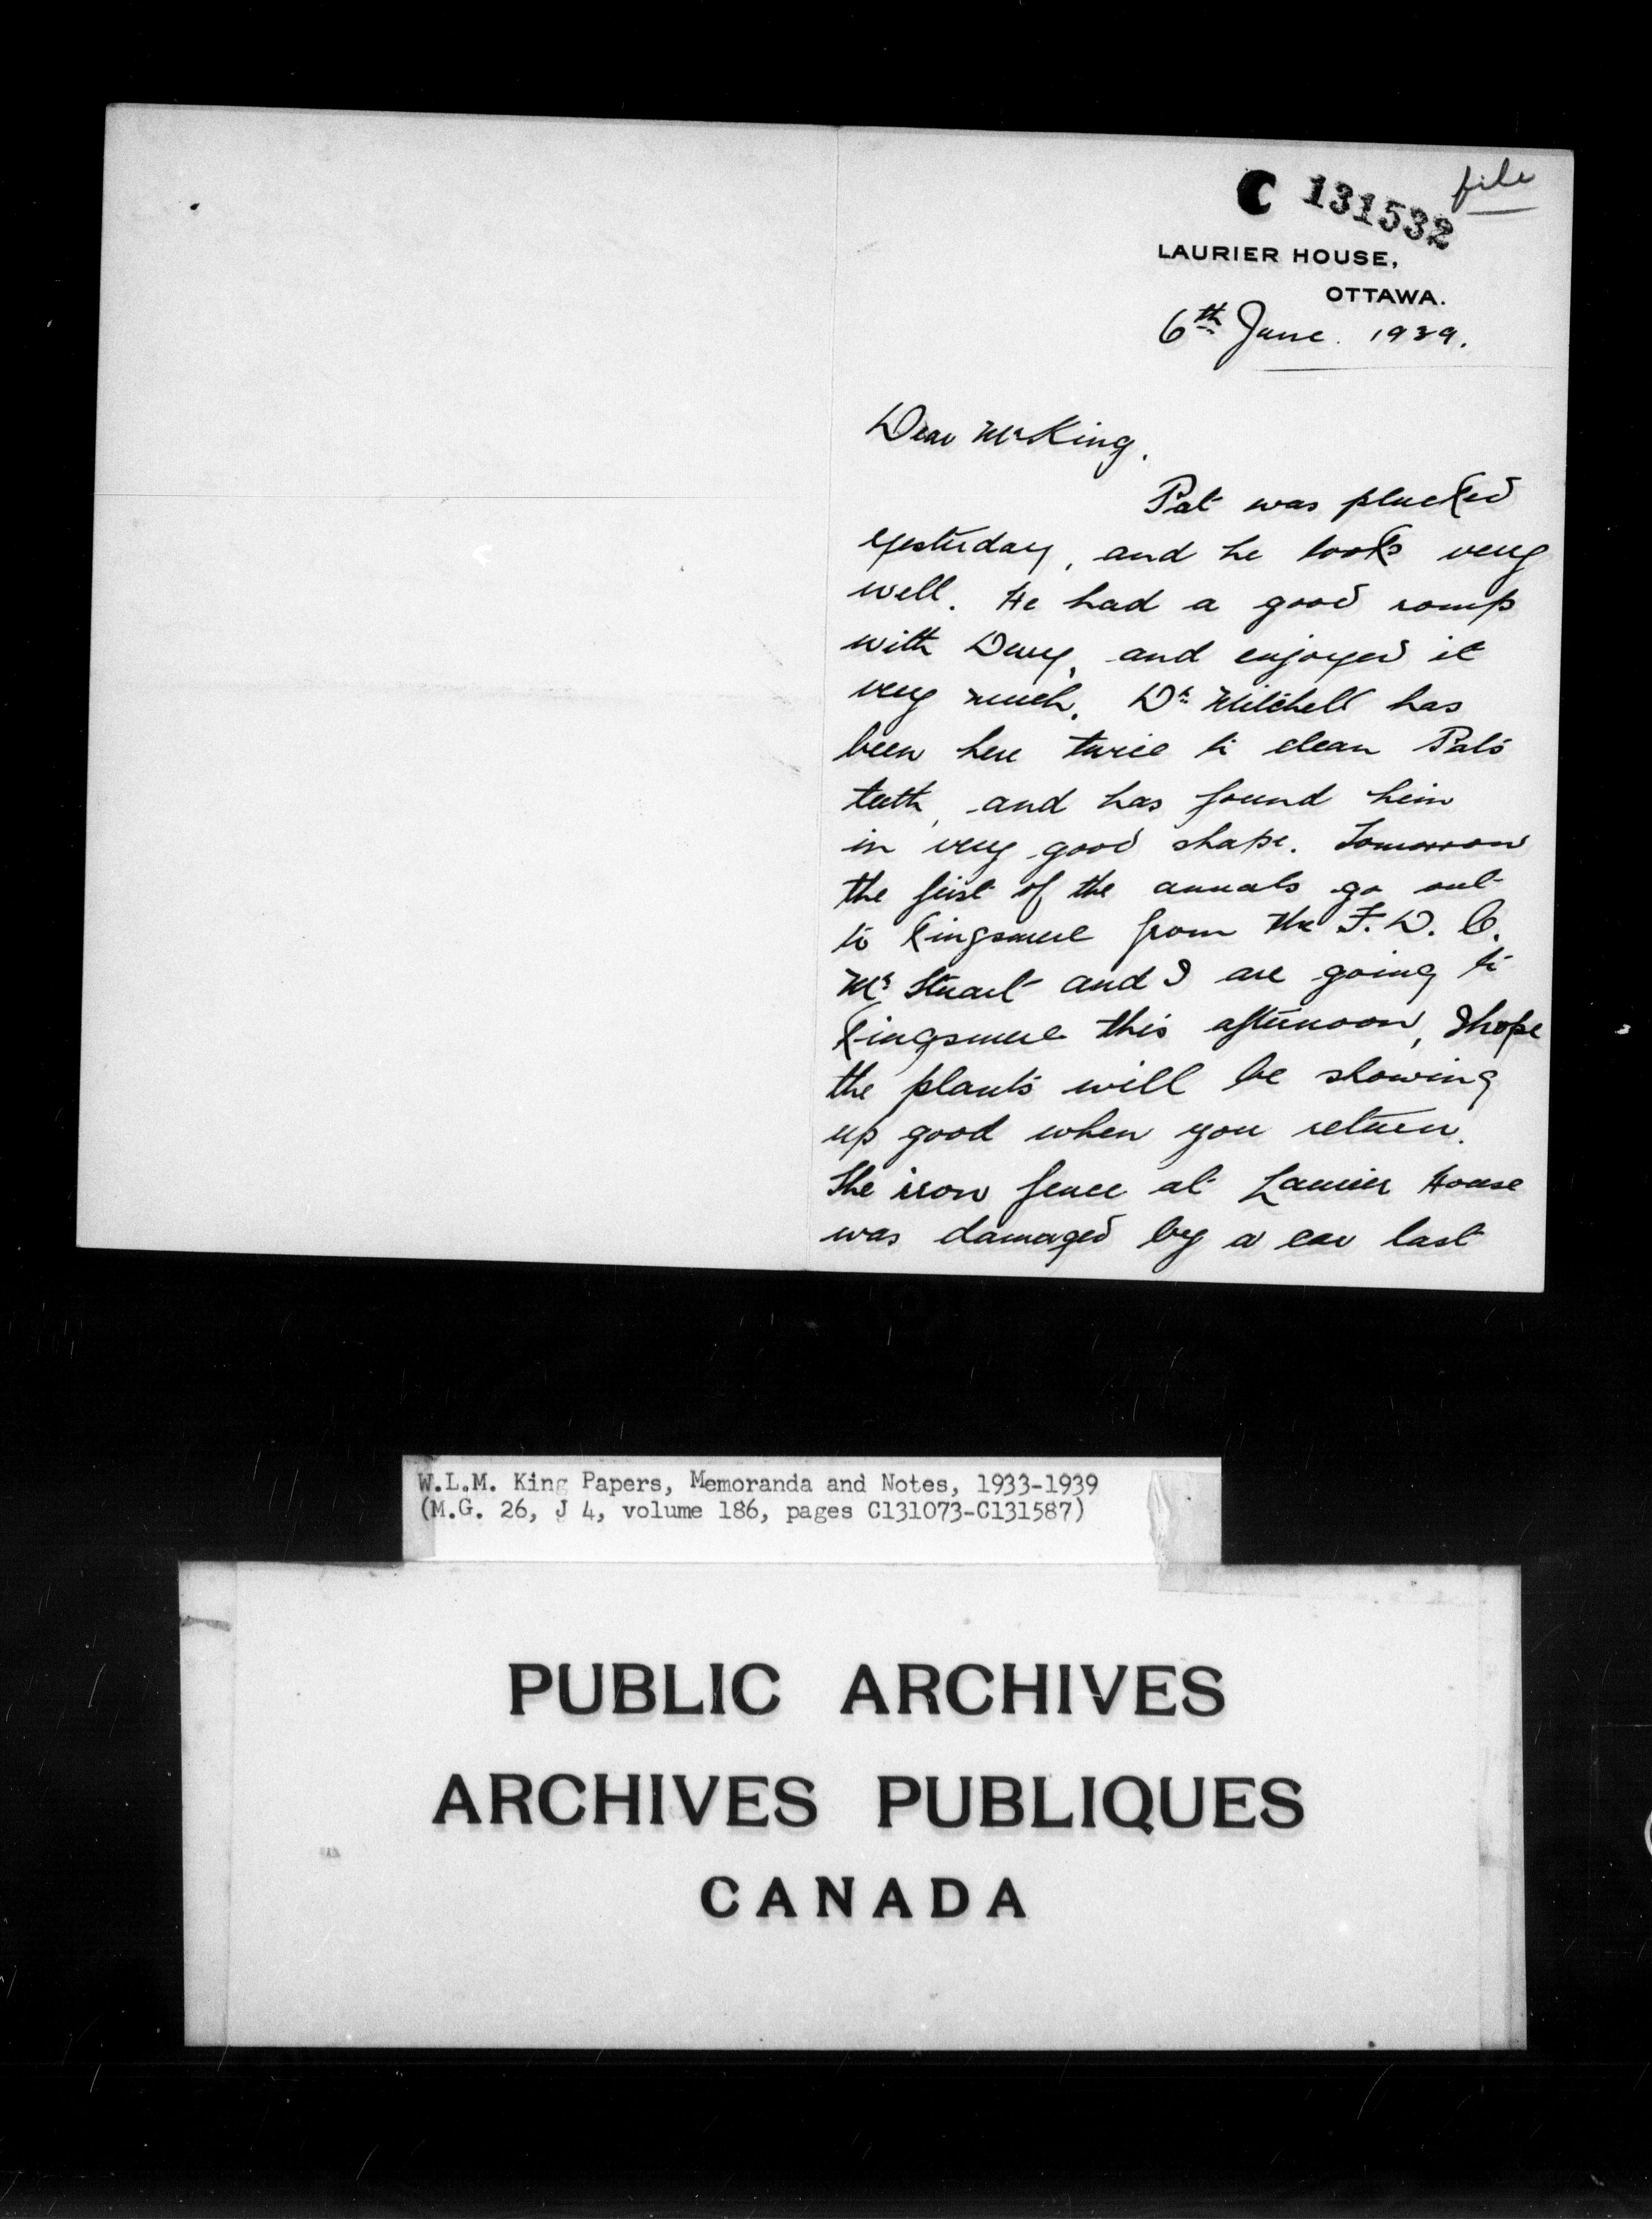 file
C 131532
LAURIER HOUSE,
OTTAWA.
6th June. 1939.
Dear Mr King,
Pat was plucked
yesterday, and he looks very
well. He had a good romp
with Derry, and enjoyed it
very much. Dr Mitchell has
been here twice to clean Pat's
teeth, and has found him
in very good shape. Tomorrow
the first of the annuals go out
to Kingsmere from the F. D. C.
Mr Stuart and I are going to
Kingsmere this afternoon, I hope
the plants will be showing
up good when you return.
The iron fence at Laurier House
was damaged by a car last
W.L.M. King Papers, Memoranda and Notes, 1933-1939
(M.G. 26, J 4, volume 186, pages C131073-C131587)
PUBLIC ARCHIVES
ARCHIVES PUBLIQUES
CANADA